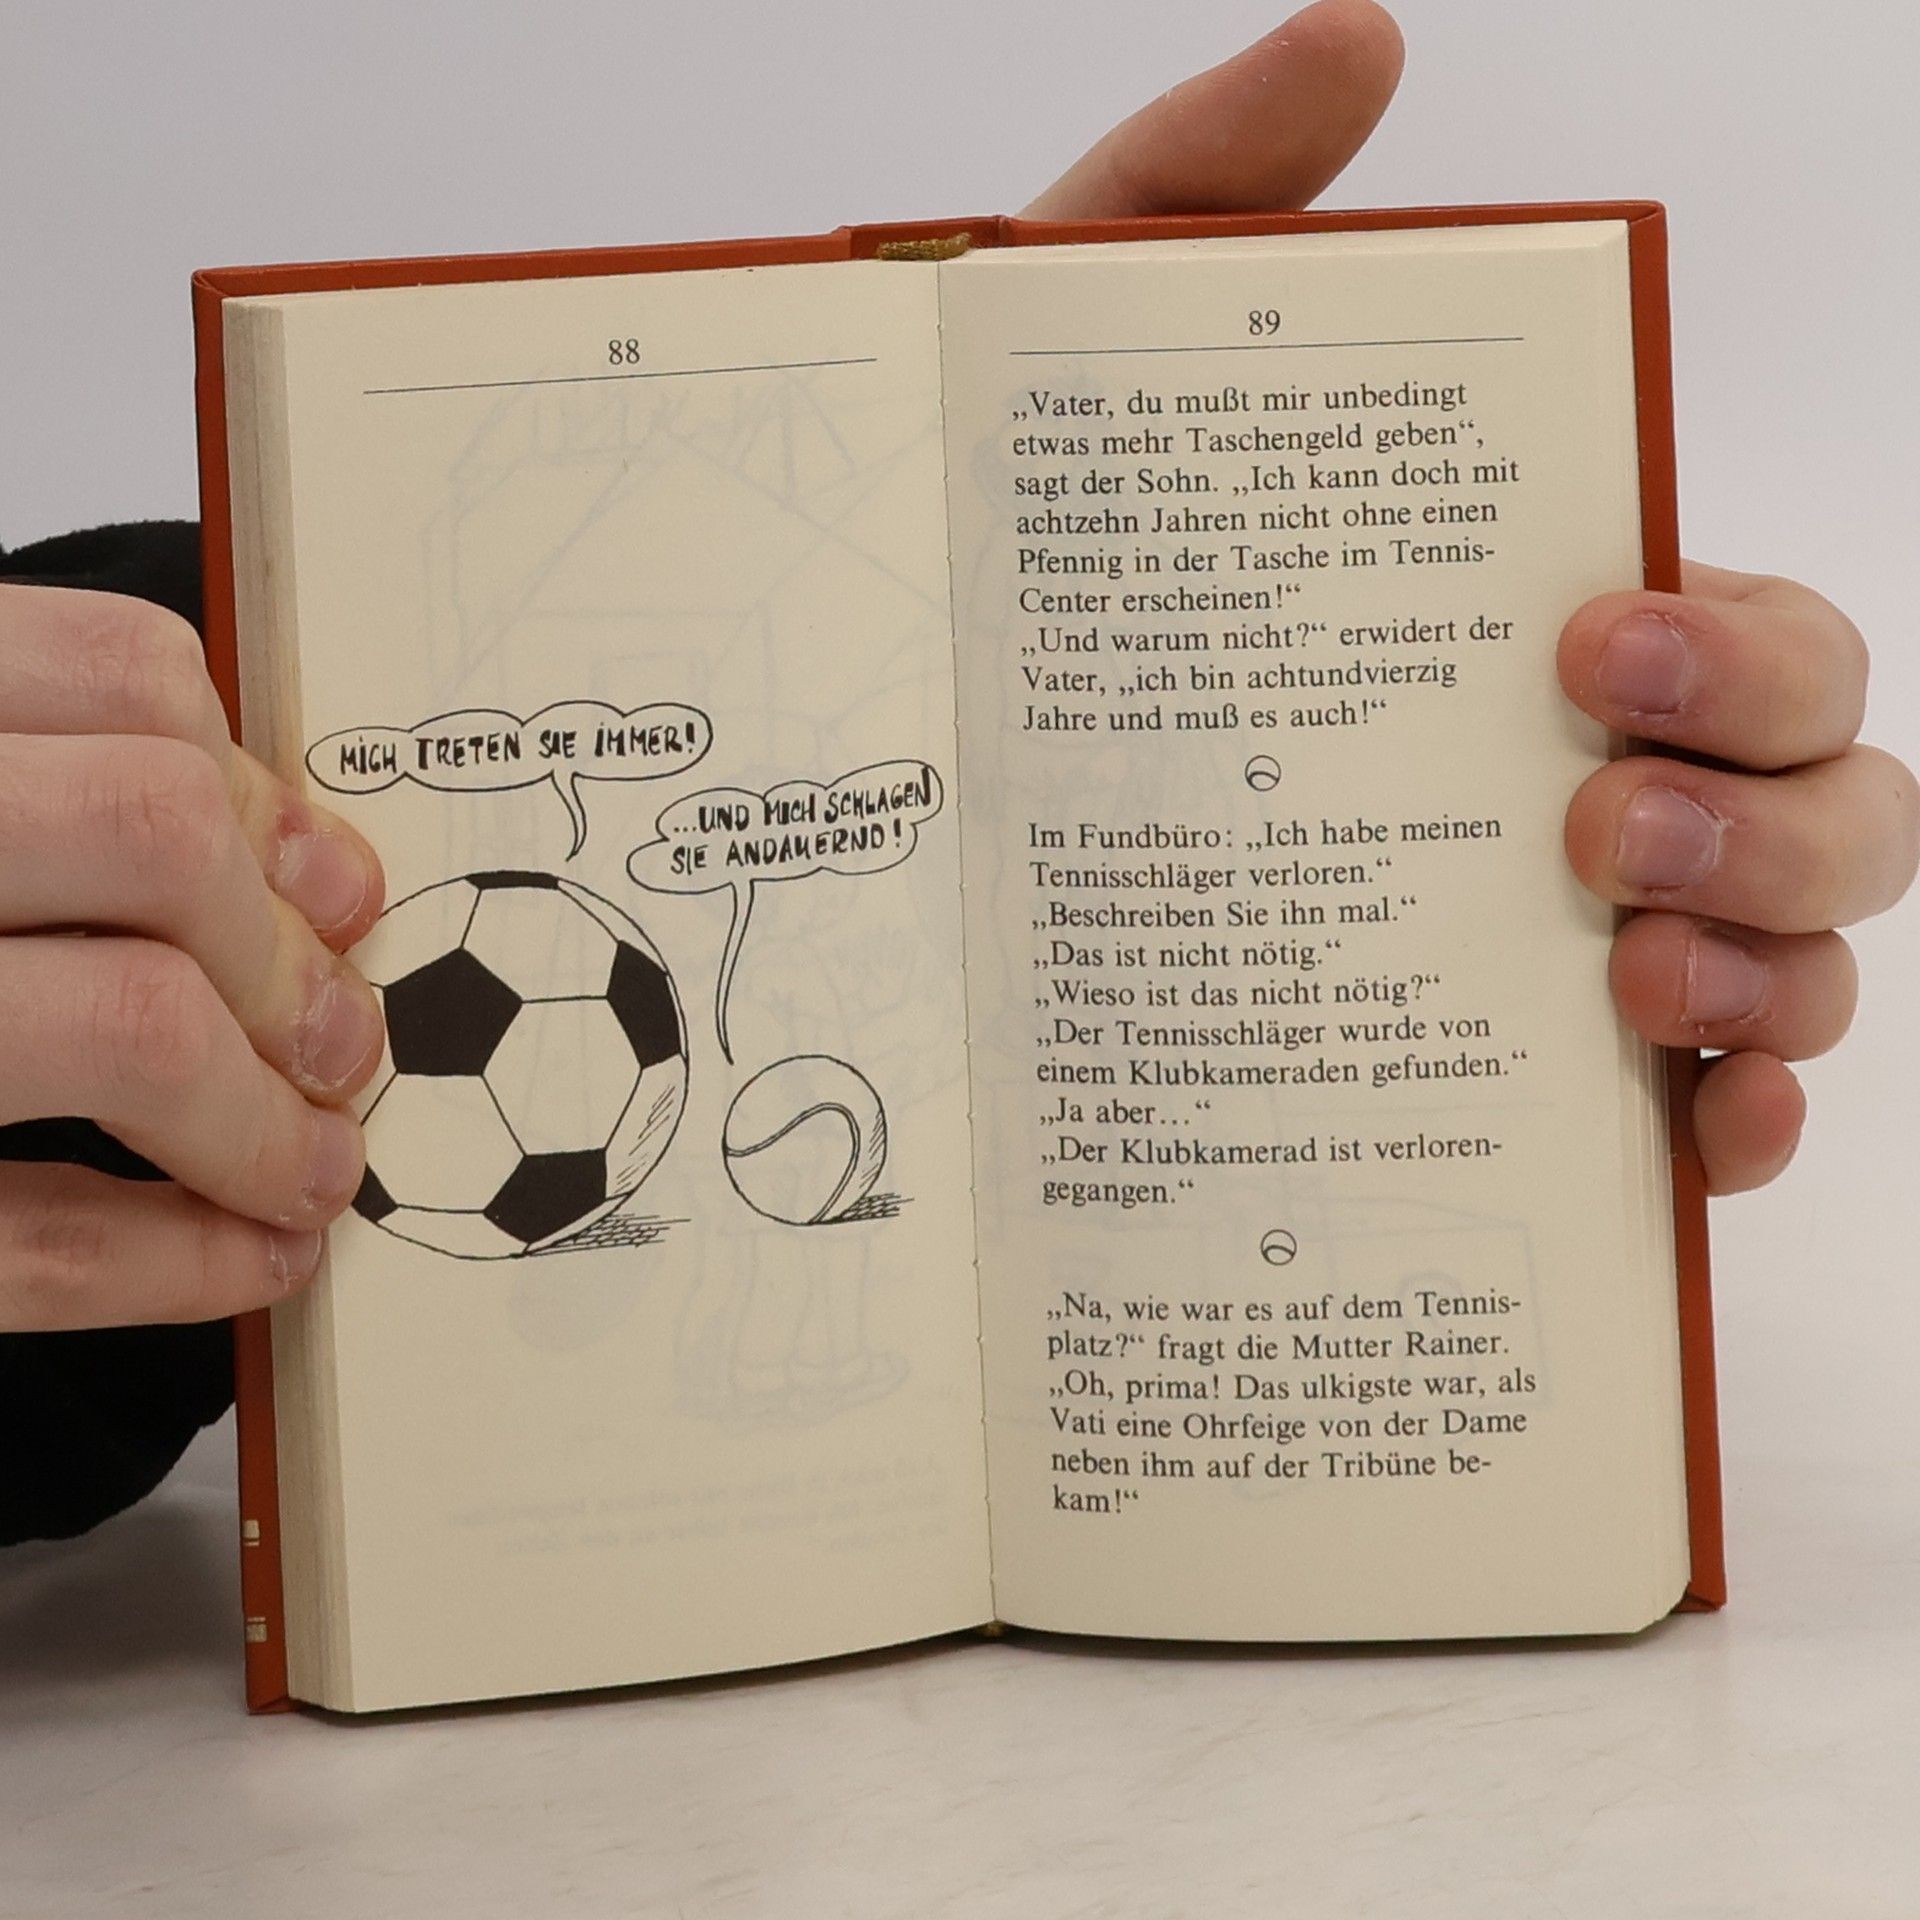 88
MICH TRETEN SIE IMMER!
...UND MICH SCHLAGEN
SIE ANDAUERND!
89
„Vater, du mußt mir unbedingt
etwas mehr Taschengeld geben“,
sagt der Sohn. „Ich kann doch mit
achtzehn Jahren nicht ohne einen
Pfennig in der Tasche im Tennis-
Center erscheinen!“
„Und warum nicht?“ erwidert der
Vater, „ich bin achtundvierzig
Jahre und muß es auch!“
Im Fundbüro: „Ich habe meinen
Tennisschläger verloren.“
„Beschreiben Sie ihn mal.“
„Das ist nicht nötig.“
„Wieso ist das nicht nötig?“
„Der Tennisschläger wurde von
einem Klubkameraden gefunden.“
„Ja aber...“
„Der Klubkamerad ist verloren-
gegangen.“
„Na, wie war es auf dem Tennis-
platz?“ fragt die Mutter Rainer.
„Oh, prima! Das ulkigste war, als
Vati eine Ohrfeige von der Dame
neben ihm auf der Tribüne be-
kam!“